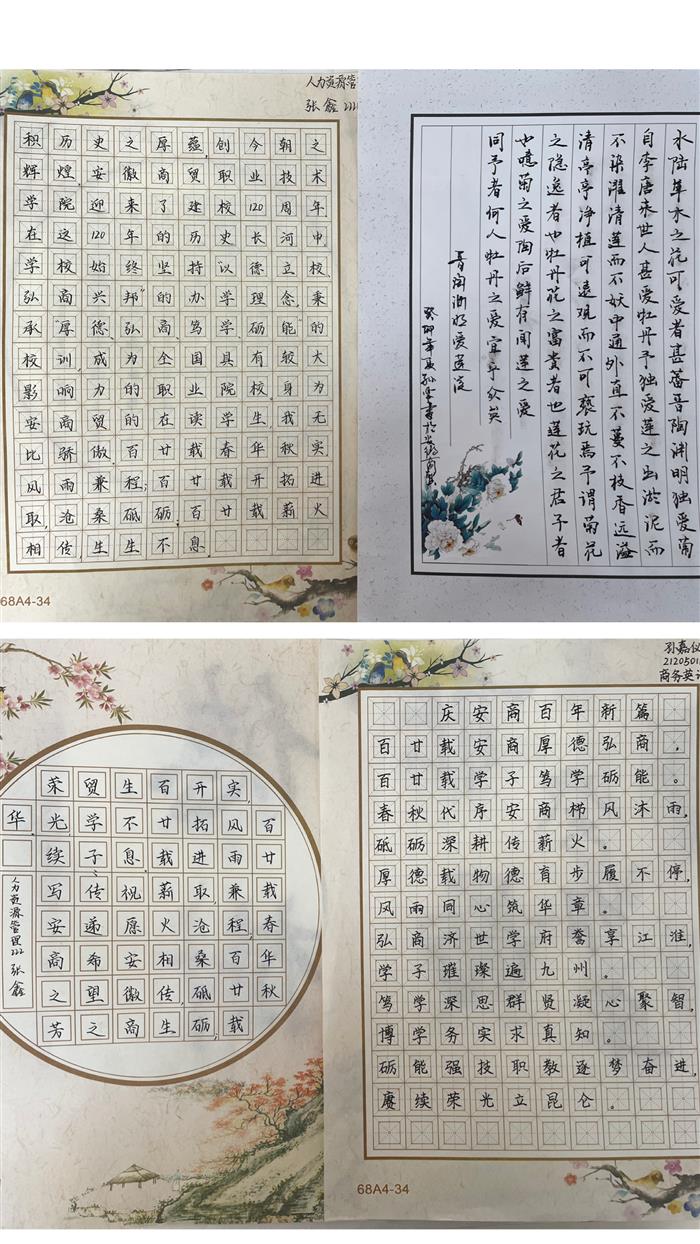 人力资源管
张鑫222
积历史之厚蕴,创今朝之
辉煌,安徽商贸职业技术
学院迎来了建校120周年,
在这120年的历史长河中,
学校始终坚持“以德立校,
弘商兴邦”的办学理念,秉
承“厚德、弘商、笃学、砺能”的
校训,成为全国具有较大
影响力的职业院校。身为
安商贸的在读学生,我无
比骄傲。百廿载春华秋实,
风雨兼程;百廿载开拓进
取,沧桑砥砺;百廿载薪火
相传,生生不息。
68A4-34
水陆草木之花可爱者甚蕃晋陶渊明独爱菊
自李唐来世人甚爱牡丹予独爱莲之出淤泥而
不染濯清莲而不妖中通外直不蔓不枝香远溢
清亭亭净植可远观而不可亵玩焉予谓菊花
之隐逸者也牡丹花之富贵者也莲花之君子者
也噫菊之爱陶后鲜有闻莲之爱
同予者何人牡丹之爱宜乎众矣
百廿载春华秋
实,风雨兼程,百廿载
开拓进取,沧桑砥砺,
百廿载薪火相传生
生不息,祝愿安徽商
贸学子、传递希望之
荣光,续写安商之芳
华。
人力资源管理222 张鑫
孙嘉仪
商务英语
庆安商百年新篇
百廿载安商厚德弘商,
百廿载学子笃学砺能。
春秋代序安商栉风沐雨,
砥砺深耕传薪火。
厚德载物德育步履不停,
风雨同心筑华章。
弘商济世学府誉享江淮,
学子璀璨遍九州。
笃学深思群贤凝心聚智,
博学务实求真知。
砺能强技职教逐梦奋进,
赓续荣光立昆仑。
68A4-34